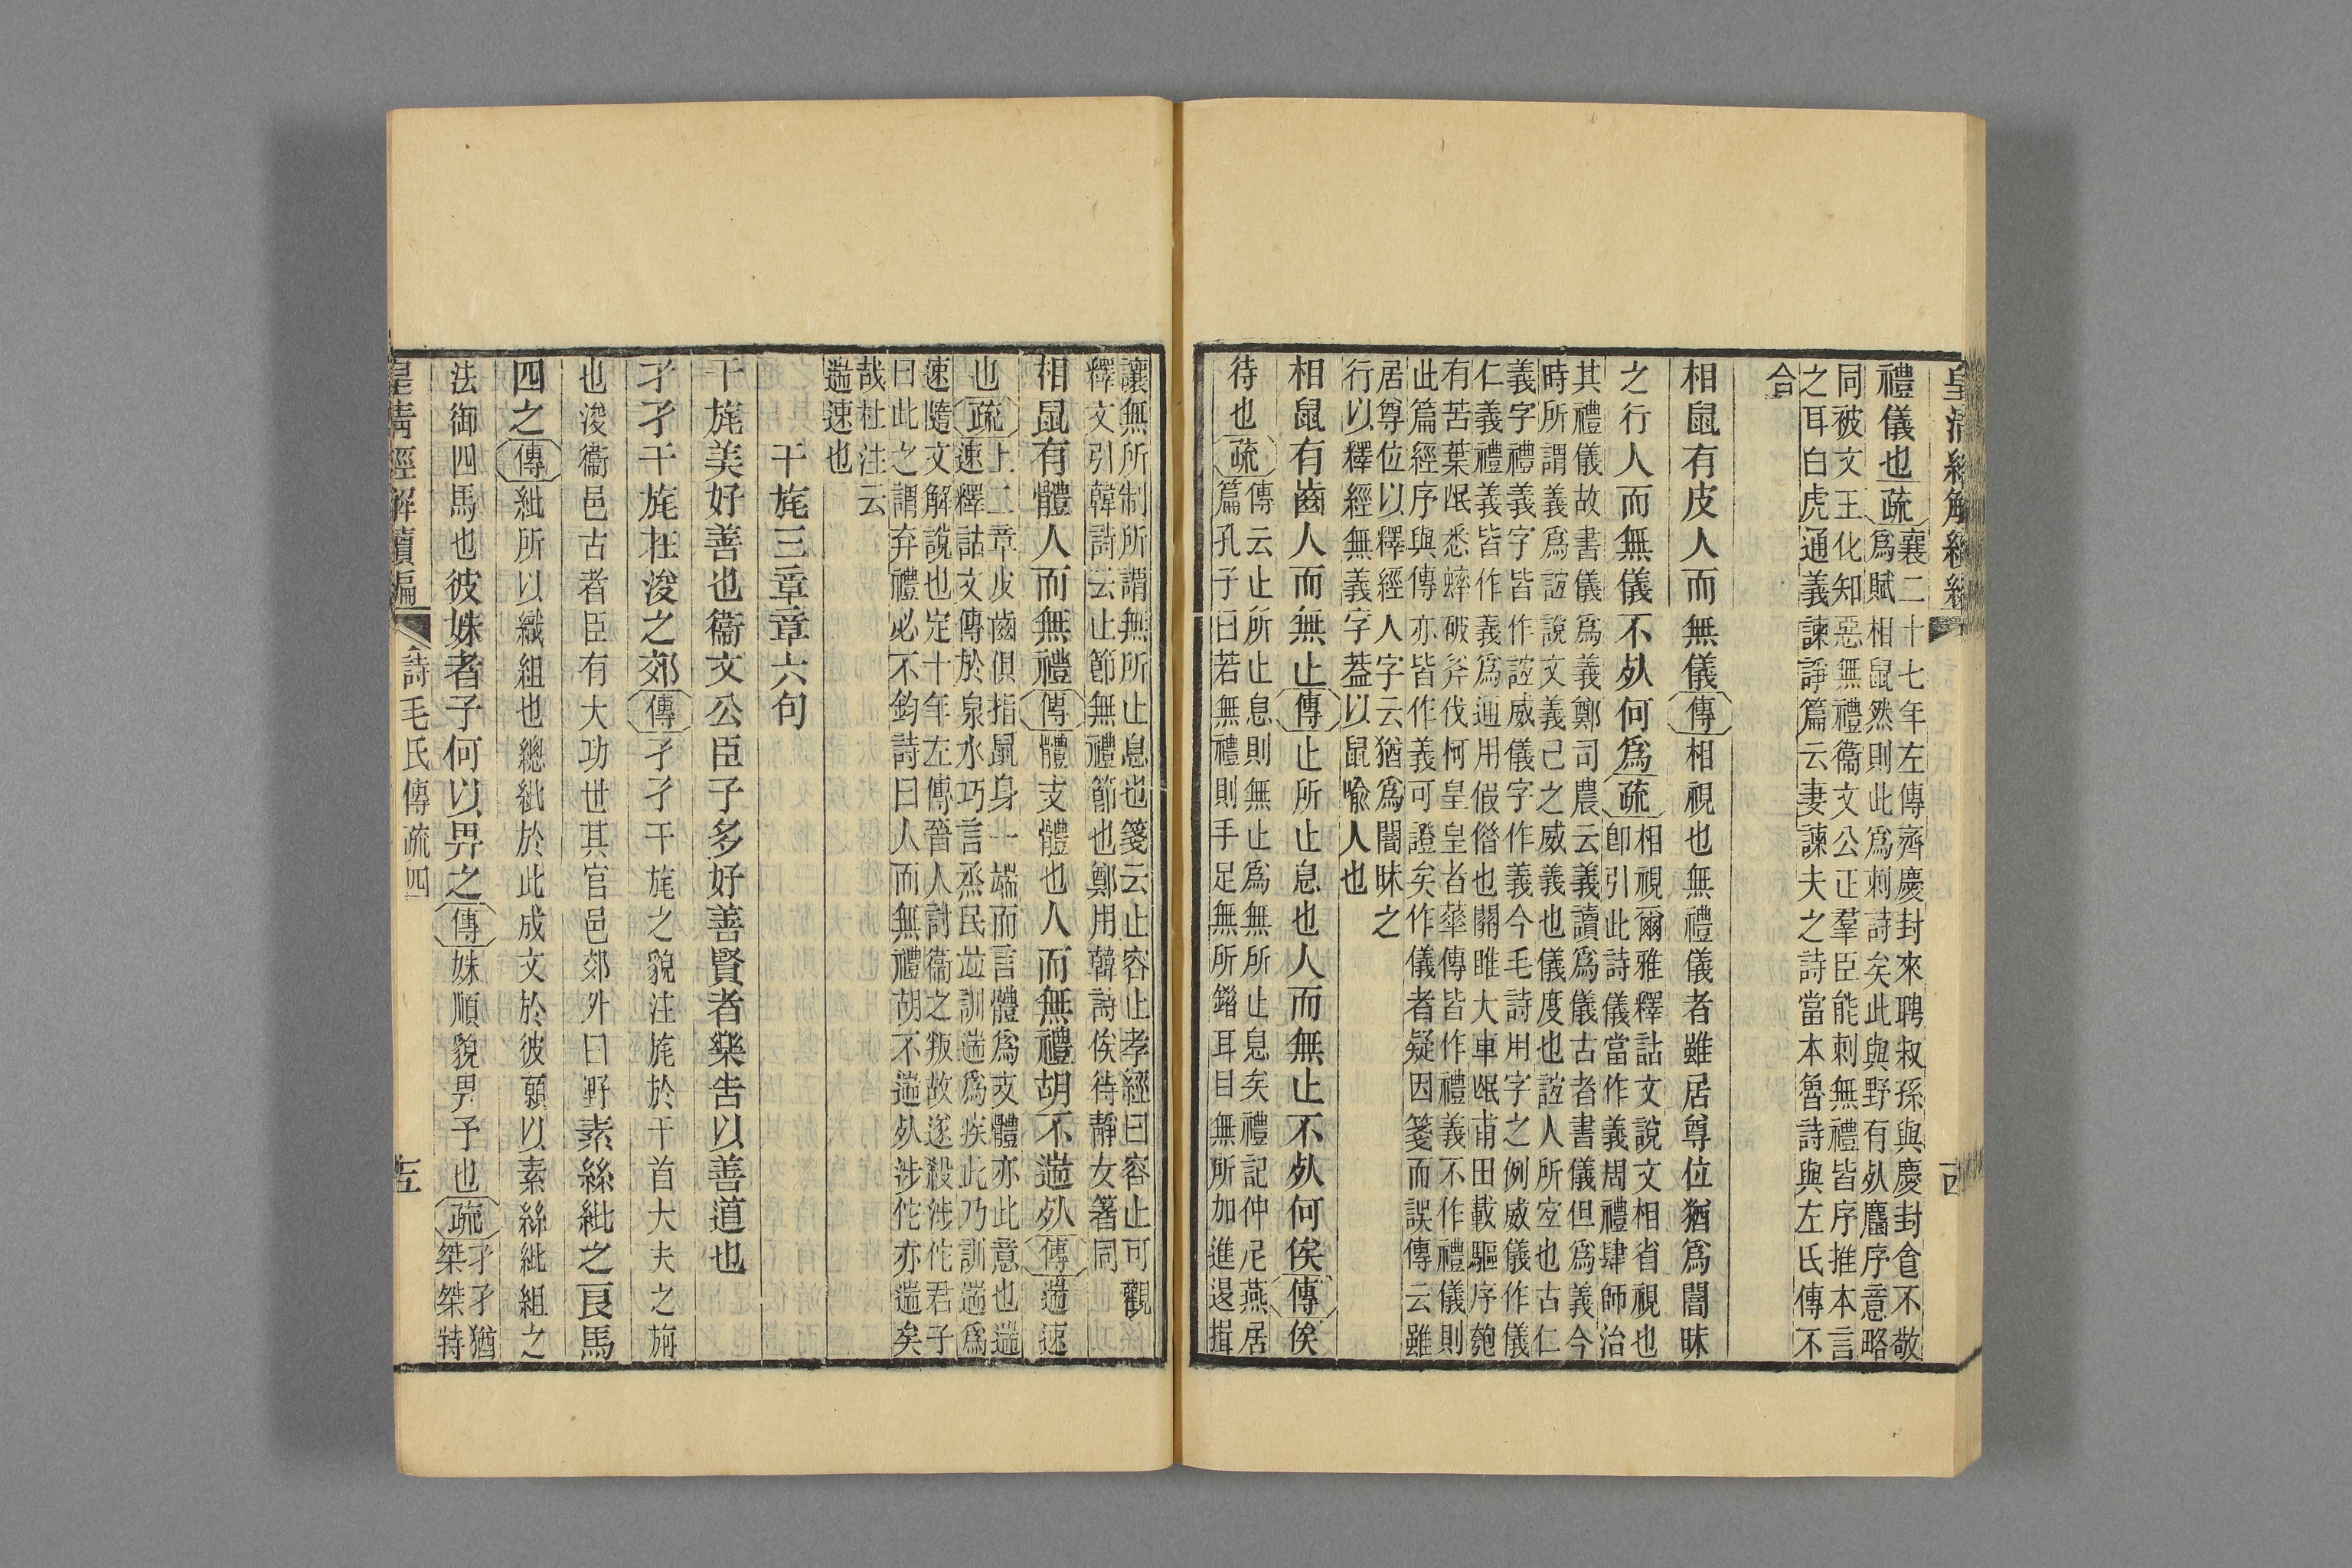 皇清經解續編
禮儀也疏襄二十七年左傳齊慶封來聘叔孫與慶封食不敬
爲賦相鼠然則此爲刺詩矣此與野有𣦸麕序意略
同被文王化知惡無禮衞文公正羣臣能刺無禮皆序推本言
之耳白虎通義諫諍篇云妻諫夫之詩當本魯詩與左氏傳不
合
相鼠有皮人而無儀傳相視也無禮儀者雖居尊位猶爲闇昧
之行人而無儀不𣦸何爲疏相視爾雅釋詁文說文相省視也
卽引此詩儀當作義周禮肆師治
其禮儀故書儀爲義鄭司農云義讀爲儀古者書儀但爲義今
時所謂義爲誼說文義己之威義也儀度也誼人所宜也古仁
義字禮義字皆作誼威儀字作義今毛詩用字之例威儀作儀
仁義禮義皆作義爲通用假借也關雎大車氓甫田載驅序匏
有苦葉氓悉蟀破斧伐柯皇皇者蕐傳皆作禮義不作禮儀則
此篇經序與傳亦皆作義可證矣作儀者疑因箋而誤傳云雖
居尊位以釋經人字云猶爲闇昧之
行以釋經無義字葢以鼠喩人也
相鼠有齒人而無止傳止所止息也人而無止不𣦸何俟傳俟
待也疏傳云止所止息則無止爲無所止息矣禮記仲尼燕居
篇孔子曰若無禮則手足無所錯耳目無所加進退揖
讓無所制所謂無所止息也箋云止容止孝經曰容止可觀
釋文引韓詩云止節無禮節也鄭用韓詩俟待靜女箸同
相鼠有體人而無禮傳體支體也人而無禮胡不遄𣦸傳遄速
也疏上二章皮齒俱指鼠身一端而言體爲支體亦此意也遄
速釋詁文傳於泉水巧言烝民竝訓遄爲疾此乃訓遄爲
速隨文解說也定十年左傳晉人討衞之叛故遂殺涉佗君子
曰此之謂弃禮必不鈞詩曰人而無禮胡不遄𣦸涉佗亦遄矣
哉杜注云
遄速也
干旄三章章六句
干旄美好善也衞文公臣子多好善賢者樂吿以善道也
孑孑干旄在浚之郊傳孑孑干旄之貌注旄於干首大夫之旃
也浚衞邑古者臣有大功世其官邑郊外曰野素絲紕之良馬
四之傳紕所以織組也總紕於此成文於彼願以素絲紕組之
法御四馬也彼姝者子何以畀之傳姝順貌畀予也疏孑孑猶
桀桀特
皇清經解續編
詩毛氏傳疏四